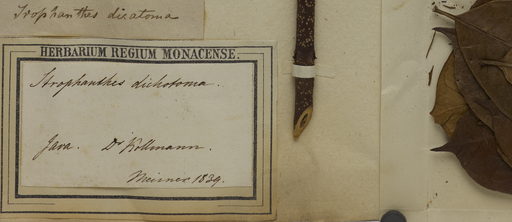 Trophanthes dicatoma
HERBARIUM REGIUM MONACENSE.
Strophanthes dichotoma.
Java. Dr Kollmann.
Meisner 1839.